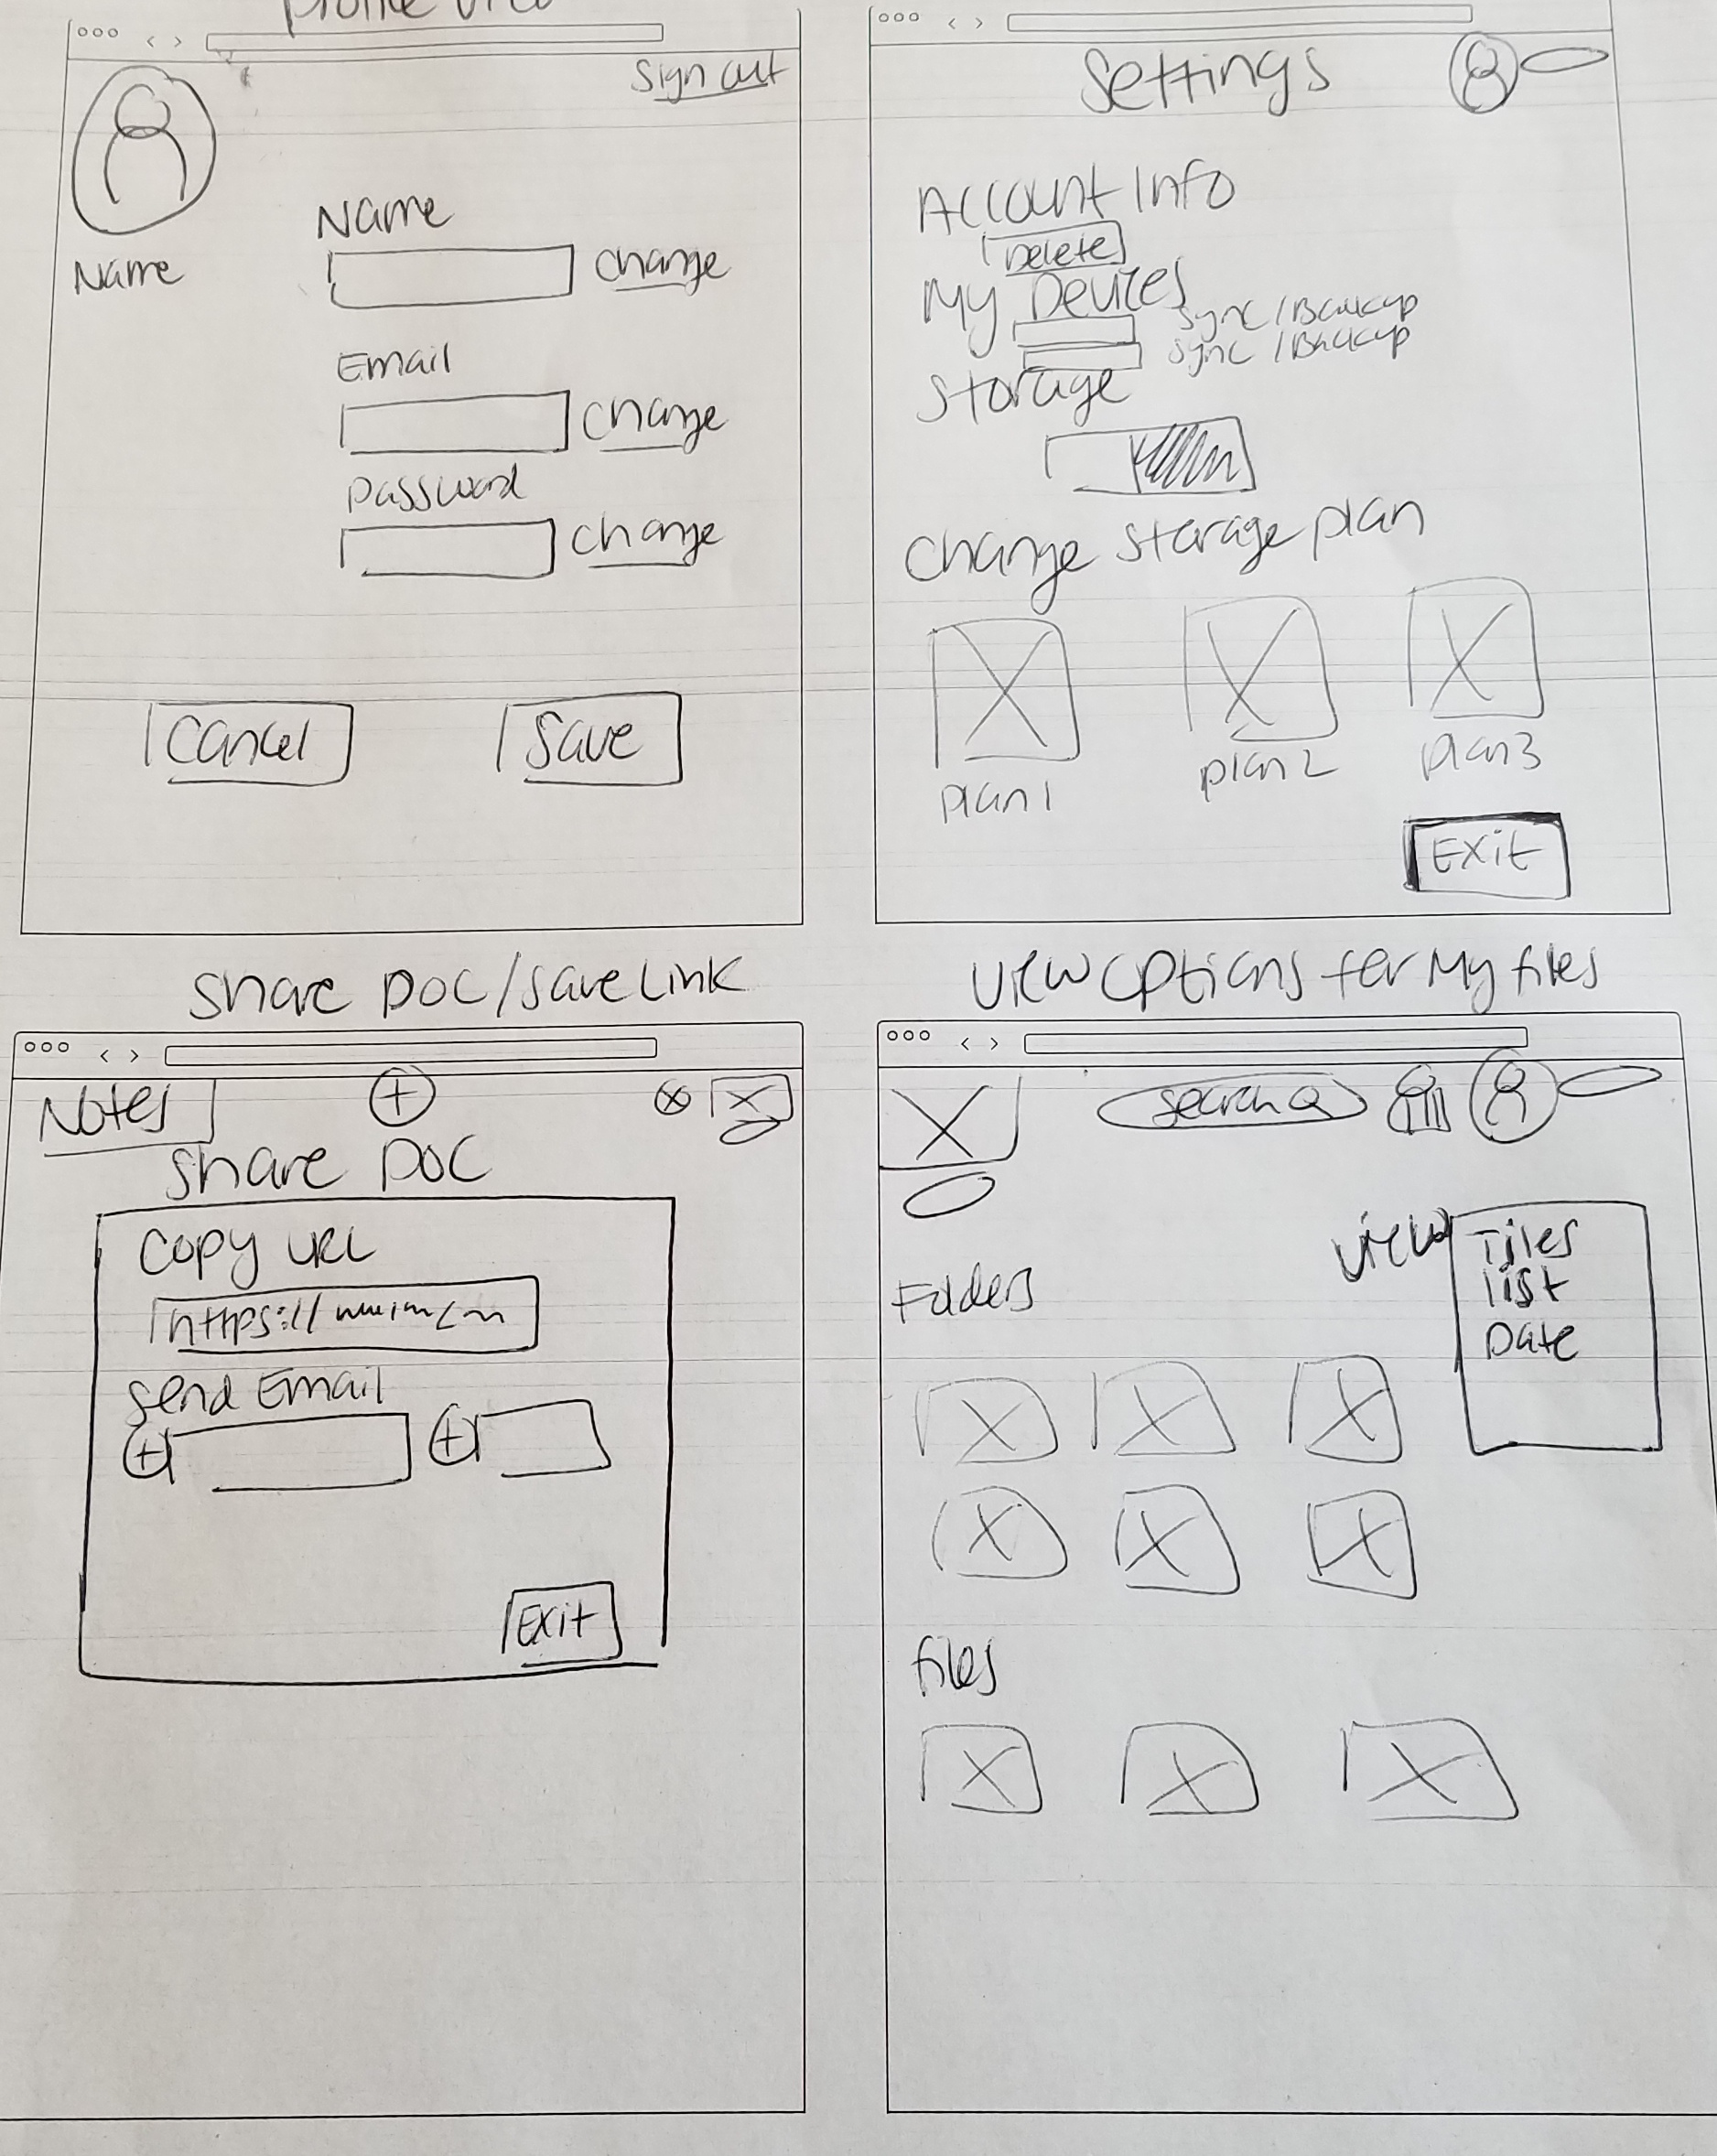 Profile View
Sign out
Name
Name
change
Email
change
Password
change
Cancel
Save
Settings
Account Info
Delete
My Devices
Sync / Backup
Sync / Backup
Storage
Change storage plan
plan 1
plan 2
plan 3
Exit
Share DOC/save Link
Notes
Share DOC
Copy URL
https://
Send Email
Exit
View options for My files
Search
View
Tiles
List
Date
Folders
files